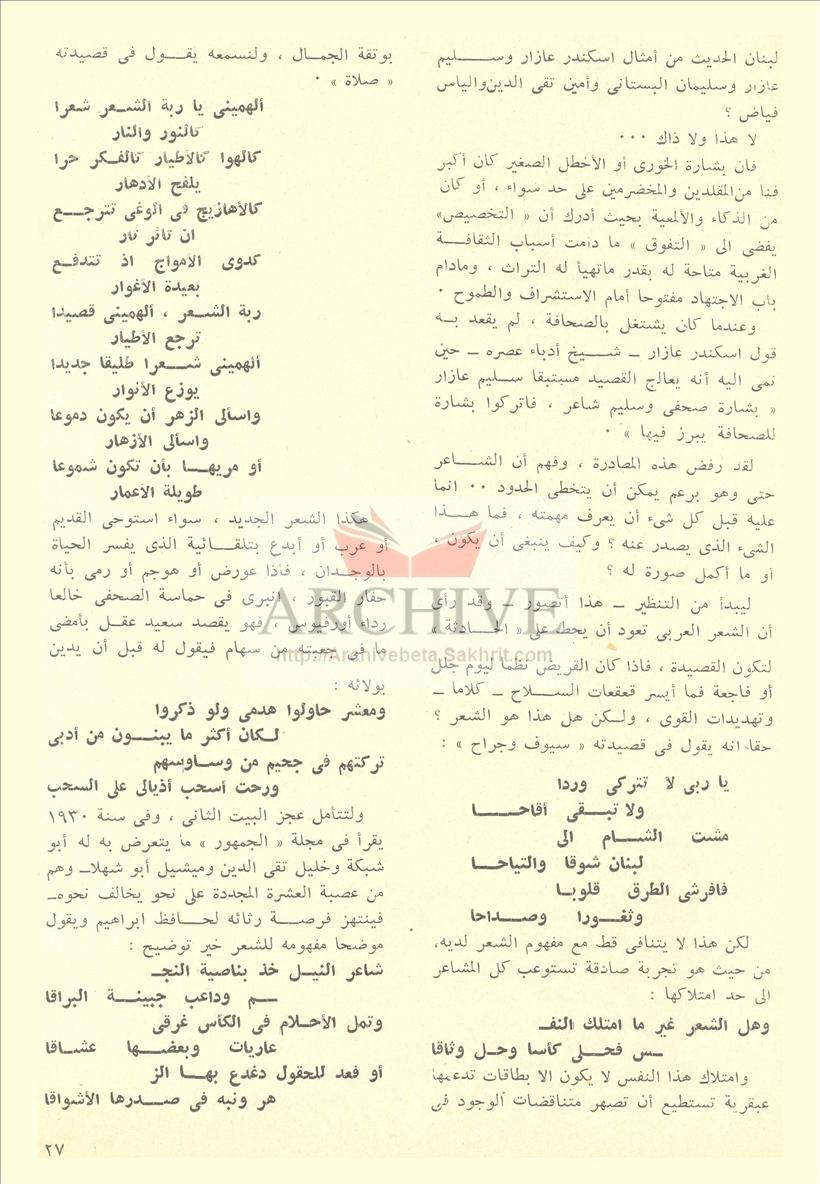 لبنان الحديث من أمثال اسكندر عازار وسليم
عازار وسليمان البستانى وأمين تقى الدين والياس
فياض ؟
لا هذا ولا ذاك ٠٠٠
فان بشارة الخورى أو الأخطل الصغير كان أكبر
فنا من المقلدين والمخضرمين على حد سواء ، أو كان
من الذكاء والألمعية بحيث أدرك أن « التخصيص»
يفضى الى « التفوق » ما دامت أسباب الثقافة
الغربية متاحة له بقدر ماتهيأ له التراث ، ومادام
باب الاجتهاد مفتوحا أمام الاستشراف والطموح ٠
وعندما كان يشتغل بالصحافة ، لم يقعد به
قول اسكندر عازار ــ شيخ أدباء عصره ــ حين
نمى اليه أنه يعالج القصيد مستبقا سليم عازار
« بشارة صحفى وسليم شاعر ، فاتركوا بشارة
للصحافة يبرز فيها » ٠
لقد رفض هذه المصادرة ، وفهم أن الشاعر
حتى وهو برعم يمكن أن يتخطى الحدود ٠٠ انما
عليه قبل كل شىء أن يعرف مهمته ، فما هذا
الشىء الذى يصدر عنه ؟ وكيف ينبغى أن يكون ،
أو ما أكمل صورة له ؟
ليبدأ من التنظير ــ هذا أتصور ــ وقد رأى
أن الشعر العربى تعود أن يحط على « الحادثة »
لتكون القصيدة ، فاذا كان القريض نظما ليوم جلل
أو فاجعة فما أيسر قعقعات السلاح ــ كلاما ــ
وتهديدات القوى ، ولكن هل هذا هو الشعر ؟
حقا انه يقول فى قصيدته « سيوف وجراح » :
يا ربى لا تتركى وردا
ولا تبقى أقاحا
مشت الشام الى
لبنان شوقا والتياحا
فافرشى الطرق قلوبا
وثغورا وصداحا
لكن هذا لا يتنافى قط مع مفهوم الشعر لديه،
من حيث هو تجربة صادقة تستوعب كل المشاعر
الى حد امتلاكها :
وهل الشعر غير ما امتلك النفـ
ـس فحلى كأسا وحل وثاقا
وامتلاك هذا النفس لا يكون الا بطاقات تدعمها
عبقرية تستطيع أن تصهر متناقضات الوجود فى
بوتقة الجمال ، ولنسمعه يقول فى قصيدته
« صلاة » ٠
ألهمينى يا ربة الشعر شعرا
كالنور والنار
كالهوا كالأطيار كالفكر حرا
يلفح الأدهار
كالأهازيج فى الوغى تترجع
ان ثائر ثار
كدوى الأمواج اذ تتدفع
بعيدة الأغوار
ربة الشعر ، ألهمينى قصيدا
ترجع الأطيار
ألهمينى شعرا طليقا جديدا
يوزع الأنوار
واسألى الزهر أن يكون دموعا
واسألى الأزهار
أو مريها بأن تكون شموعا
طويلة الأعمار
هكذا الشعر الجديد ، سواء استوحى القديم
أو عرب أو أبدع بتلقائية الذى يفسر الحياة
بالوجدان ، فاذا عورض أو هوجم أو رمى بأنه
حفار القبور ، انبرى فى حماسة الصحفى خالعا
رداء أورفيوس ، فهو يقصد سعيد عقل بأمضى
ما فى جعبته من سهام فيقول له قبل أن يدين
بولائه :
ومعشر حاولوا هدمى ولو ذكروا
لكان أكثر ما يبنون من أدبى
تركتهم فى جحيم من وساوسهم
ورحت أسحب أذيالى على السحب
ولنتأمل عجز البيت الثانى ، وفى سنة ١٩٣٠
يقرأ فى مجلة « الجمهور » ما يتعرض به له أبو
شبكة وخليل تقى الدين وميشيل أبو شهلاــ وهم
من عصبة العشرة المجددة على نحو يخالف نحوهــ
فينتهز فرصة رثائه لحافظ ابراهيم ويقول
موضحا مفهومه للشعر خير توضيح :
شاعر النيل خذ بناصية النجـ
ـم وداعب جبينة البراقا
وتمل الأحلام فى الكأس غرقى
عاريات وبعضها عشاقا
أو فعد للحقول دغدغ بها الز
هر ونبه فى صدرها الأشواقا
ARCHIVE
http://Archivebeta.Sakhrit.com
٢٧